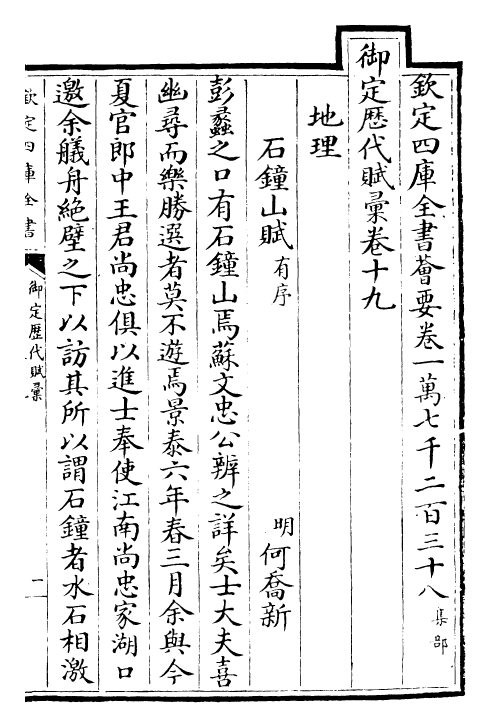 欽定四庫全書薈要卷一萬七千二百三十八 集部
御定歷代賦彙卷十九
地理
石鐘山賦 有序 明 何喬新
彭蠡之口有石鐘山焉蘇文忠公辨之詳矣士大夫喜
幽尋而樂勝選者莫不遊焉景泰六年春三月余與今
夏官郎中王君尚忠俱以進士奉使江南尚忠家湖口
邀余艤舟絶壁之下以訪其所以謂石鐘者水石相激
欽定四庫全書
御定歷代賦彙
一